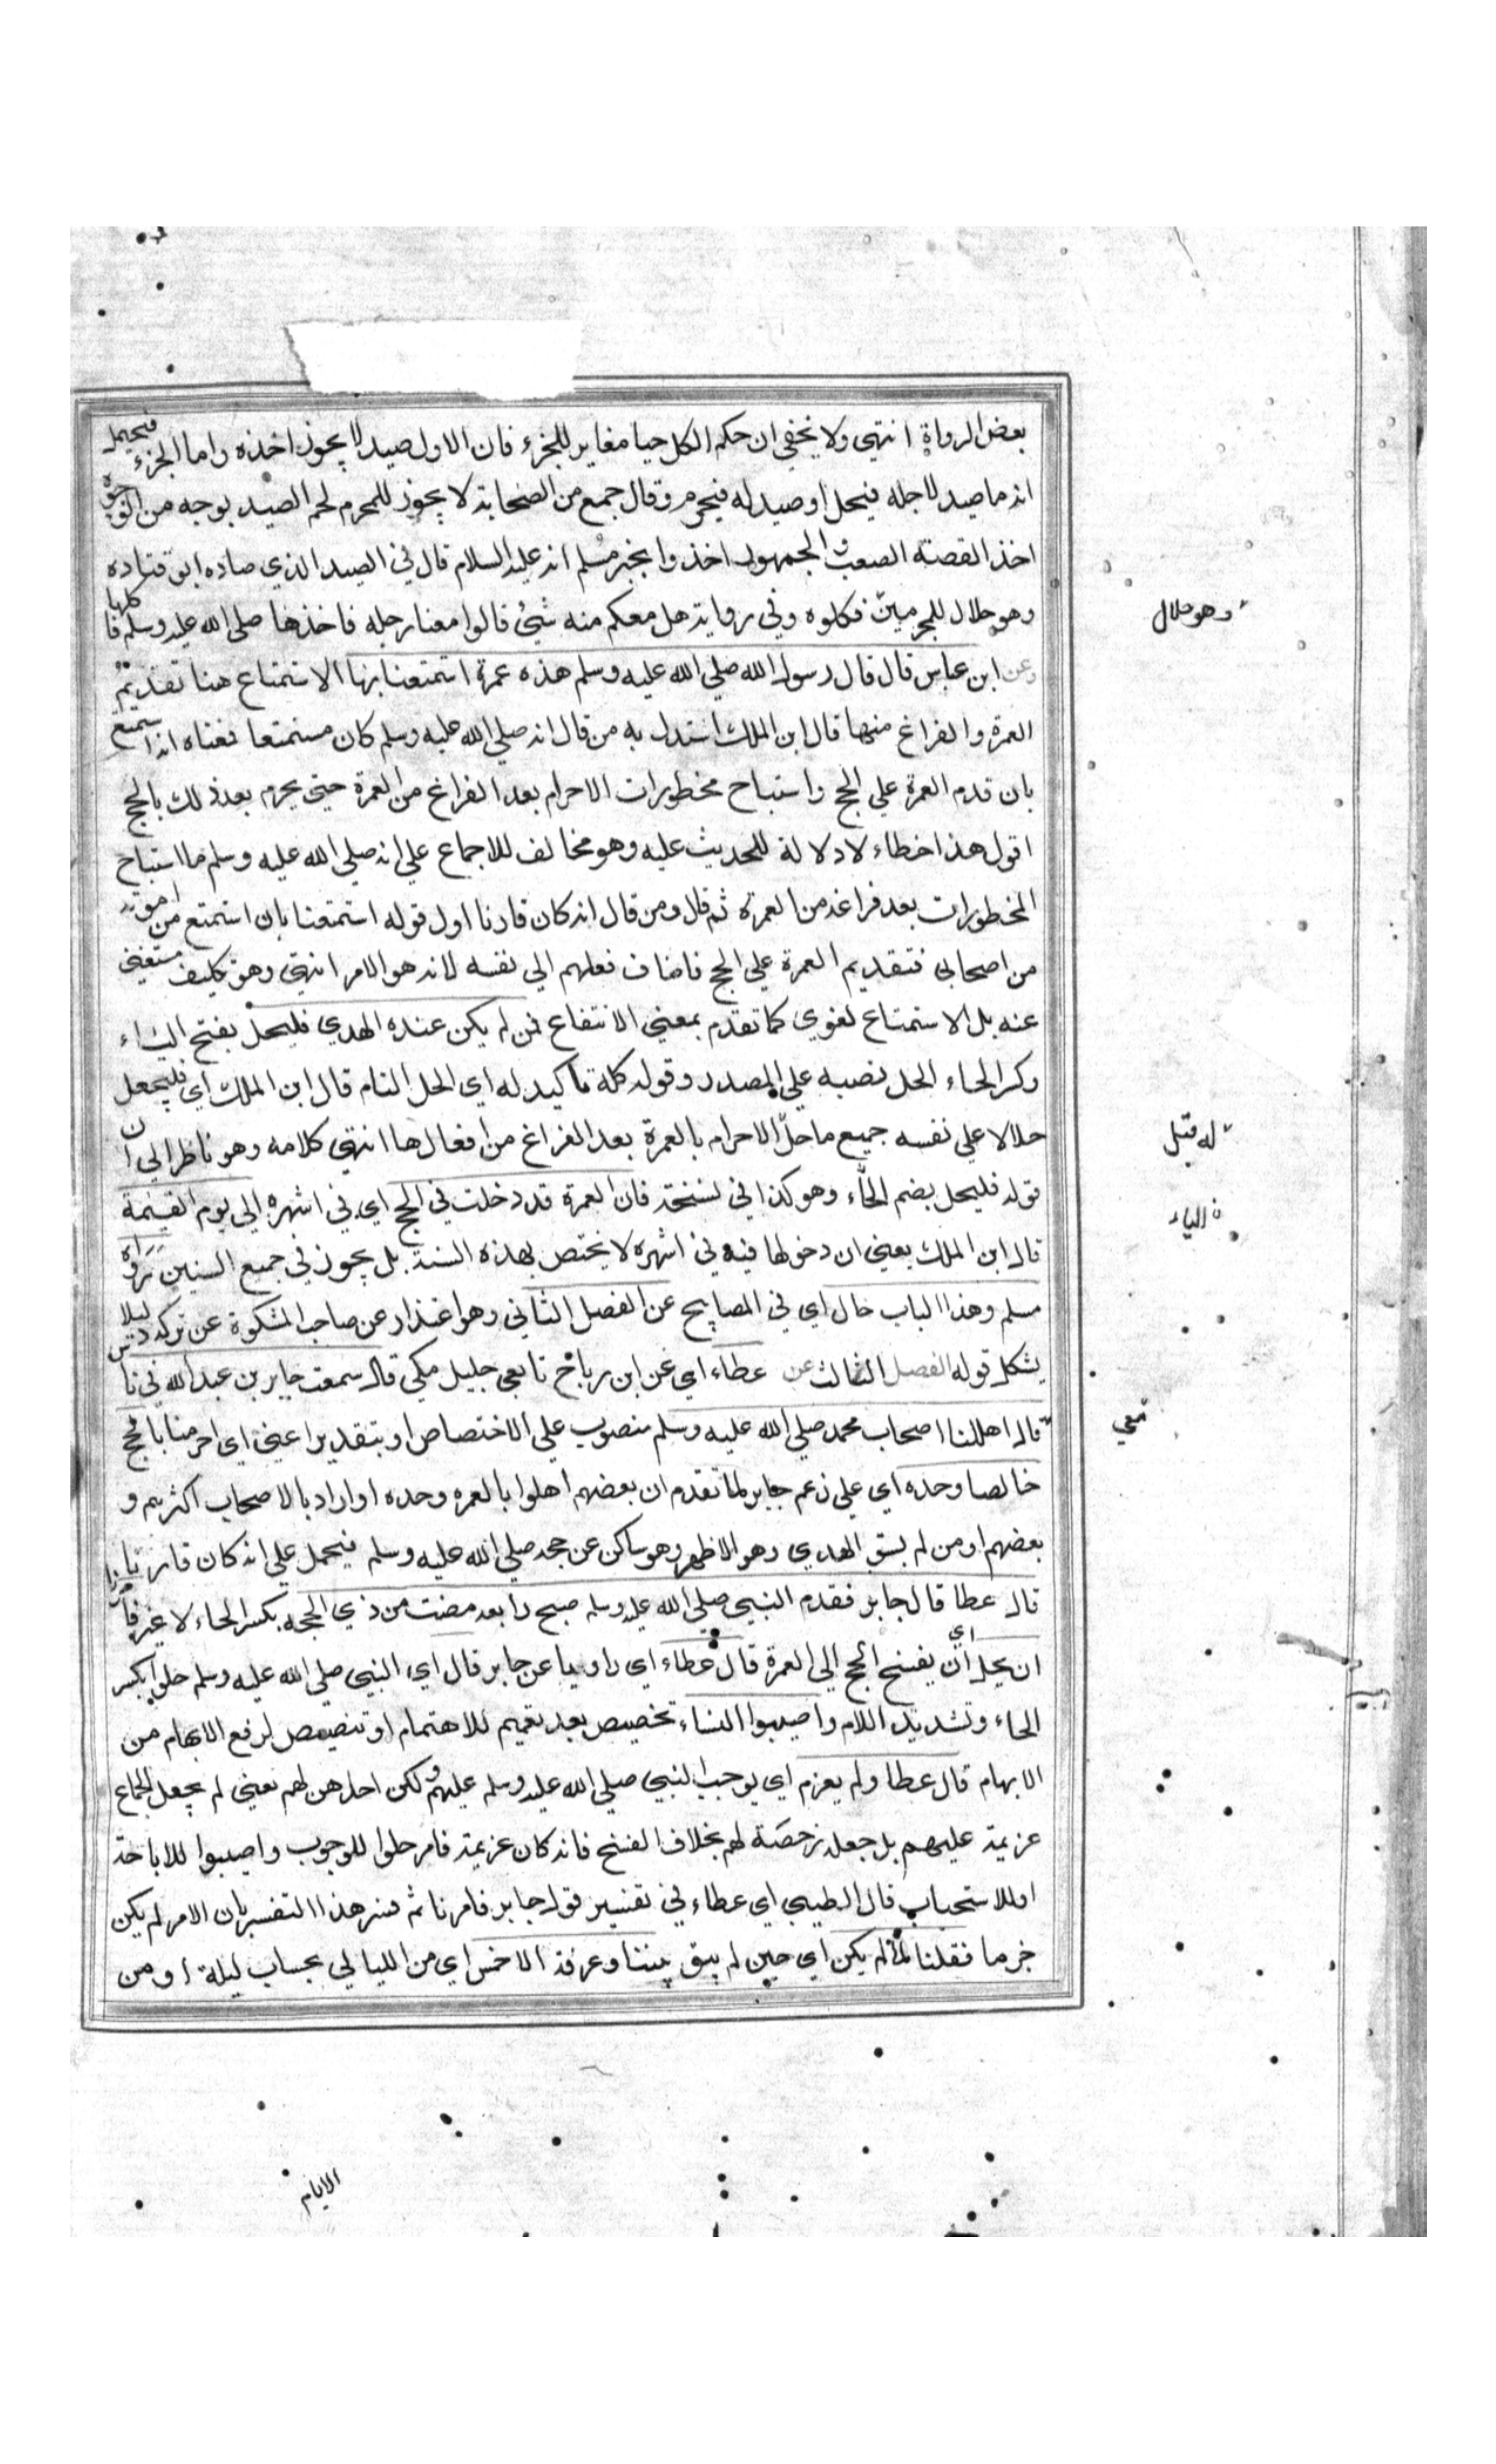 بعض الرواة انتهى ولا يخفي ان حكم الكل حيا مغاير للجزء فان الاول صيد لا يجوز اخذه واما الجزء فيحمل
انه ما صيد لاجله فيحل او صيد له فيحرم وقال جمع من الصحابة لا يجوز للمحرم لحم الصيد بوجه من الوجوه
اخذ القصته الصعب والجمهور اخذوا بخبر مسلم انه عليه السلام قال في الصيد الذي صاده ابو قتاده
وهو حلال للمحرمين فكلوه وفي رواية هل معكم منه شيئ قالوا معنا رجله فاخذها صلى الله عليه وسلم فاكلها
وعن ابن عباس قال قال رسول الله صلي الله عليه وسلم هذه عمرة استمتعنا بها الاستمتاع هنا تقديم
العمرة والفراغ منها قال ابن الملك استدل به من قال انه صلي الله عليه وسلم كان متمتعا فمعناه انه استمتع
بان قدم العمرة علي الحج واستباح محظورات الاحرام بعد الفراغ من العمرة حتي يحرم بعد ذلك بالحج
اقول هذا خطاء لا دلالة للحديث عليه وهو مخالف للاجماع علي انه صلي الله عليه وسلم ما استباح
المحظورات بعد فراغه من العمرة ثم قال ومن قال انه كان قارنا اول قوله استمتعنا بان استمتع من امرته
من اصحابي فتقديم العمرة علي الحج فاضاف فعلهم الي نفسه لانه هو الامر انتهي وهو تكليف مستغني
عنه بل الاستمتاع لغوي كما تقدم بمعني الانتفاع فمن لم يكن عنده الهدي فليحل بفتح الياء
وكسر الحاء الحل نصبه علي المصدر وقوله كلة تاكيد له اي الحل التام قال ابن الملك اي فليجعل
حلالا علي نفسه جميع ما حل الاحرام بالعمرة بعد الفراغ من افعالها انتهي كلامه وهو ناظر الي ان
قوله فليحل بضم الحاء وهو كذا في نسخة فان العمرة قد دخلت في الحج اي في اشهره الي يوم القيمة
قال ابن الملك يعني ان دخولها فيه في اشهره لا يختص بهذه السنة بل يجوز في جميع السنين رواه
مسلم وهذا الباب خال اي في المصابيح عن الفصل الثاني وهو اعتذار عن صاحب المشكوة عن تركه ليلا
يشكل قوله الفصل الثالث عن عطاء اي عن ابن رباح تابعي جليل مكي قال سمعت جابر بن عبد الله في ناس
قال اهللنا اصحاب محمد صلي الله عليه وسلم منصوب علي الاختصاص او بتقدير اعني اي احرمنا بالحج
خالصا وحده اي علي زعم جابر لما تقدم ان بعضهم اهلوا بالعمره وحده او اراد بالاصحاب اكثرهم و
بعضهم او من لم يسق الهدي وهو الاظهر وهو ساكن عن حجه صلي الله عليه وسلم فيحمل علي انه كان قارنا
قال عطا قال جابر فقدم النبي صلي الله عليه وسلم صبح رابعه مضت من ذي الحجه بكسر الحاء لا غير فامرنا
ان نحل اي ان يفسخ الحج الي العمرة قال عطاء اي راويا عن جابر قال اي النبي صلي الله عليه وسلم حلوا بكسر
الحاء وتشديد اللام واصيبوا النساء تخصيص بعد تعميم للاهتمام او تنصيص لرفع الابهام من
الابهام قال عطا ولم يعزم اي يوجب النبي صلي الله عليه وسلم عليهم ولكن احلهن لهم يعني لم يجعل الجماع
عزيمة عليهم بل جعله رخصة لهم بخلاف الفسخ فانه كان عزيمة فامر حلوا للوجوب واصيبوا للاباحة
او للاستحباب قال الطيبي اي عطاء في تفسير قول جابر فامرنا ثم فسر هذا التفسير بان الامر لم يكن
جزما فقلنا لما لم يكن اي حين لم يبق بيننا وعرفة الا خمس اي من الليالي بحساب ليلة او من
وهو حلال
له قبل
الياء
معي
الايام